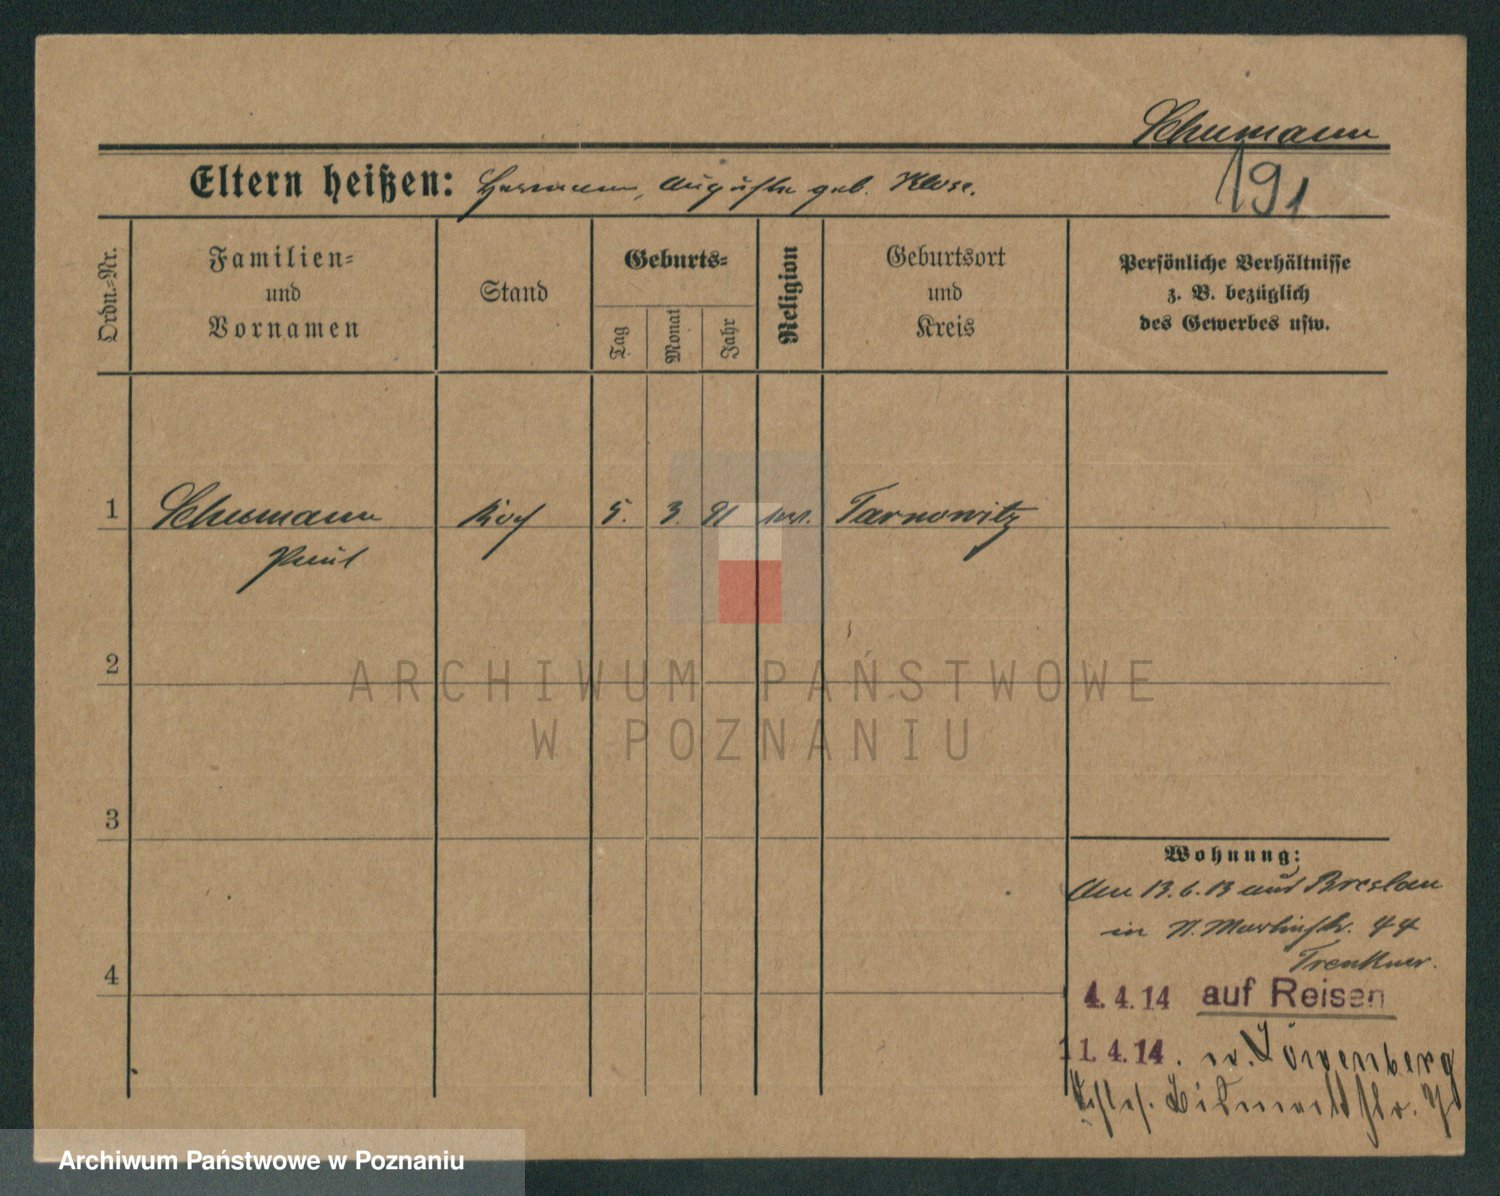 Schumann
Eltern heißen: Hermann, Auguste geb. Klose.
191
Ordn.-Nr.
Familien-
und
Vornamen
Stand
Geburts-
Tag
Monat
Jahr
Religion
Geburtsort
und
Kreis
Persönliche Verhältnisse
z. B. bezüglich
des Gewerbes usw.
1 Schumann Koch 5. 3. 91 Tarnowitz
Paul
2
ARCHIWUM PAŃSTWOWE
W POZNANIU
3
Wohnung:
Am 13.6.13 aus Breslau
in St. Martinstr. 44
Trenkner.
4
4.4.14 auf Reisen
11.4.14. n. Löwenberg
Schles. Bismarckstr.
Archiwum Państwowe w Poznaniu